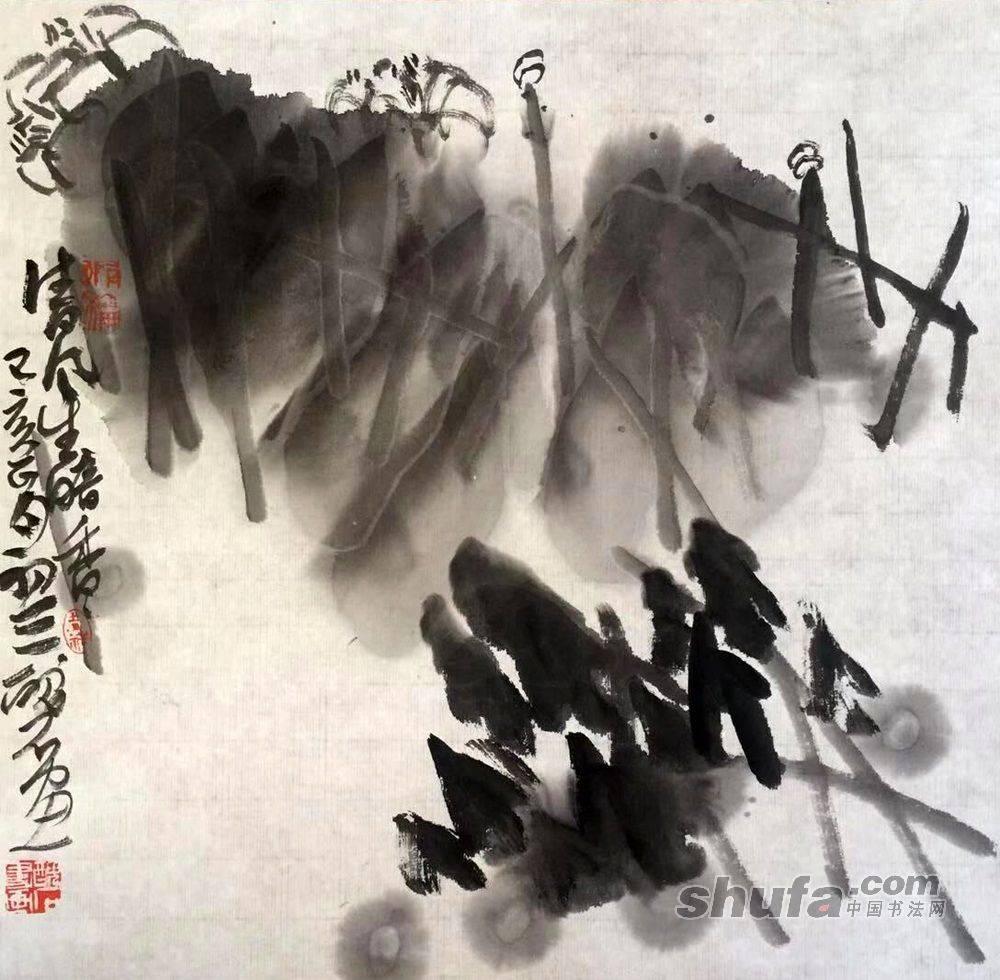 清风生暗香
己亥正月初三醉石画
shufa.com
中国书法网